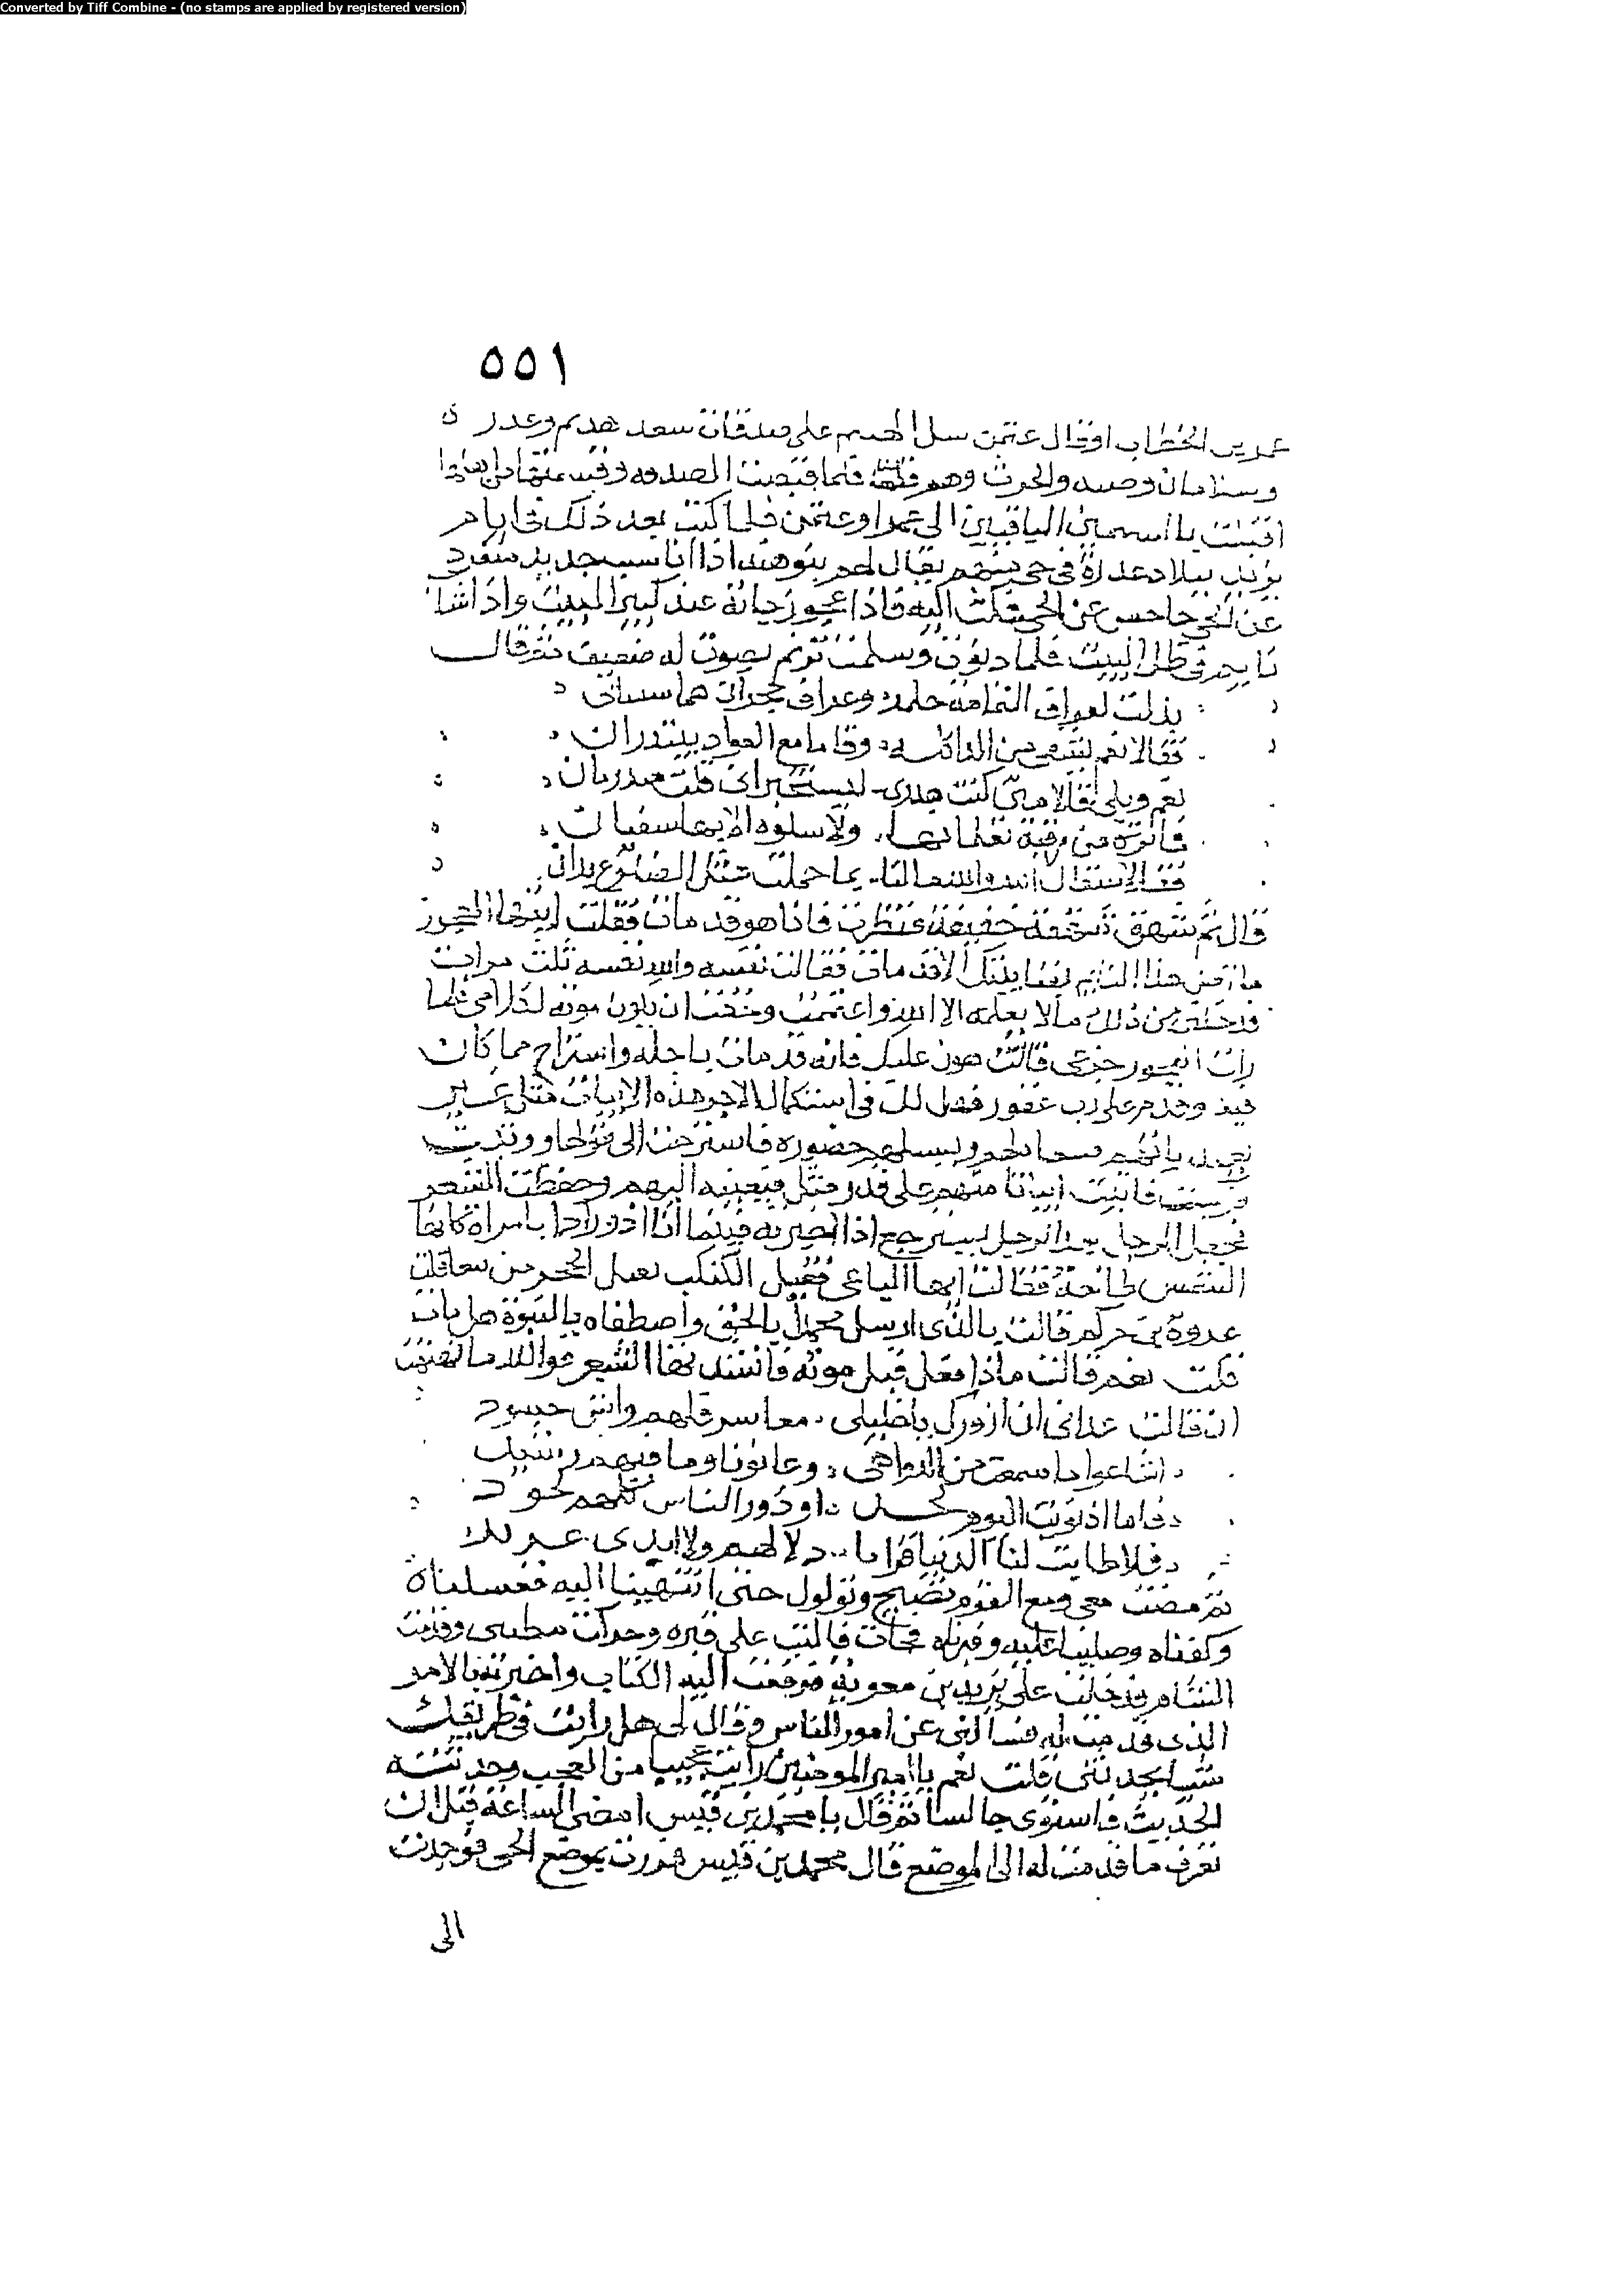 Converted by Tiff Combine - (no stamps are applied by registered version)
٥٥١
الخطاب او قال عثمن على صدقات سعد هديم وعدر
وسلامان والحرث وهم فلما قبضت الصدقه وقسمتها
اقبلت بالسهمين الباقيين الى عمر او عثمن فلما كنت بعد ذلك بايام
ببلاد عذرة في حي منهم يقال لهم بنو هند اذا انا ببيت جديد منفرد
عن الحي فملت اليه فاذا عجوز جالسة عند كسر البيت واذا شاب
نايم في ظل البيت فلما دنوت وسلمت ترنم بصوت له ضعيف ثم قال
بذلت لعراف اليمامة حكمه وعراف نجران هما
فقالا نعم نشفي من الداء كله وقاما مع العواد يبتدران
نعم وبلى قالا متى كنت هكذا ليستخبراني قلت منذ زمان
فما تركا من رقية يعلمانها ولا سلوة الا بها سقياني
فقالا شفاك الله والله ما لنا بما حملت منك الضلوع يدان
قال ثم شهق شهقة خفيفة فنظرت فاذا هو قد مات فقلت ايتها العجوز
ما اظن هذا النايم بفنايك الا قد مات فقالت نفسه والله نفسه ثلث مرات
فدخلني من ذلك ما لا يعلمه الا الله واغتممت وخفت ان يكون موته لكلامي فلما
رات العجوز جزعي قالت هون عليك فانه قد مات باجله واستراح مما كان
فيه وقدم على رب غفور فهل لك في استكمال الاجر هذه الابيات منك غير
بعيد تاتيهم فتنعاه لهم وتسلهم حضوره فاسترحت الى قولها
فاتيت ابياتا منهم على قدر ميل فنعيته اليهم وحفظت الشعر
فجعل الرجل بعد الرجل يسترجع اذا اخبر به فبينما انا ادور اذا بامراة كانها
الشمس طالعة فقالت ايها الناعي بفيك الكثكث بفيك الحجر من تنعا قلت
عروة بن حزام قالت بالذي ارسل محمدا بالحق واصطفاه بالنبوة هل مات
قلت نعم قالت ماذا فعل قبل موته فانشدتها الشعر فوالله ما
ان قالت عداني ان ازورك يا خليلي معاشر كلهم واش حسود
اشاعوا ما سمعت من الدواهي وعابونا وما فيهم رشيد
فاما اذ ثويت اليوم لحدا ودور الناس كلهم لحود
فلا طابت لنا الدنيا فراقا ولا لهم ولا
ثم مضت معي ومع القوم تصيح وتولول حتى انتهينا اليه فغسلناه
وكفناه وصلينا عليه وقبرناه فجات فاكبت على قبره وحركت مطيتي وقدمت
الشام فدخلت على يزيد بن معوية فدفعت اليه الكتاب واخبرته بالامر
الذي قدمت له فسالني عن امور الناس وقال لي هل رايت في طريقك
شيا تحدثني قلت نعم يا امير المومنين رايت عجيبا من العجب وحدثته
الحديث فاستوى جالسا ثم قال يا محمد بن قيس امض الساعة قبل ان
تعرف ما قدمت له الى الموضع قال محمد بن قيس فمررت بموضع الحي فوجدت
الى